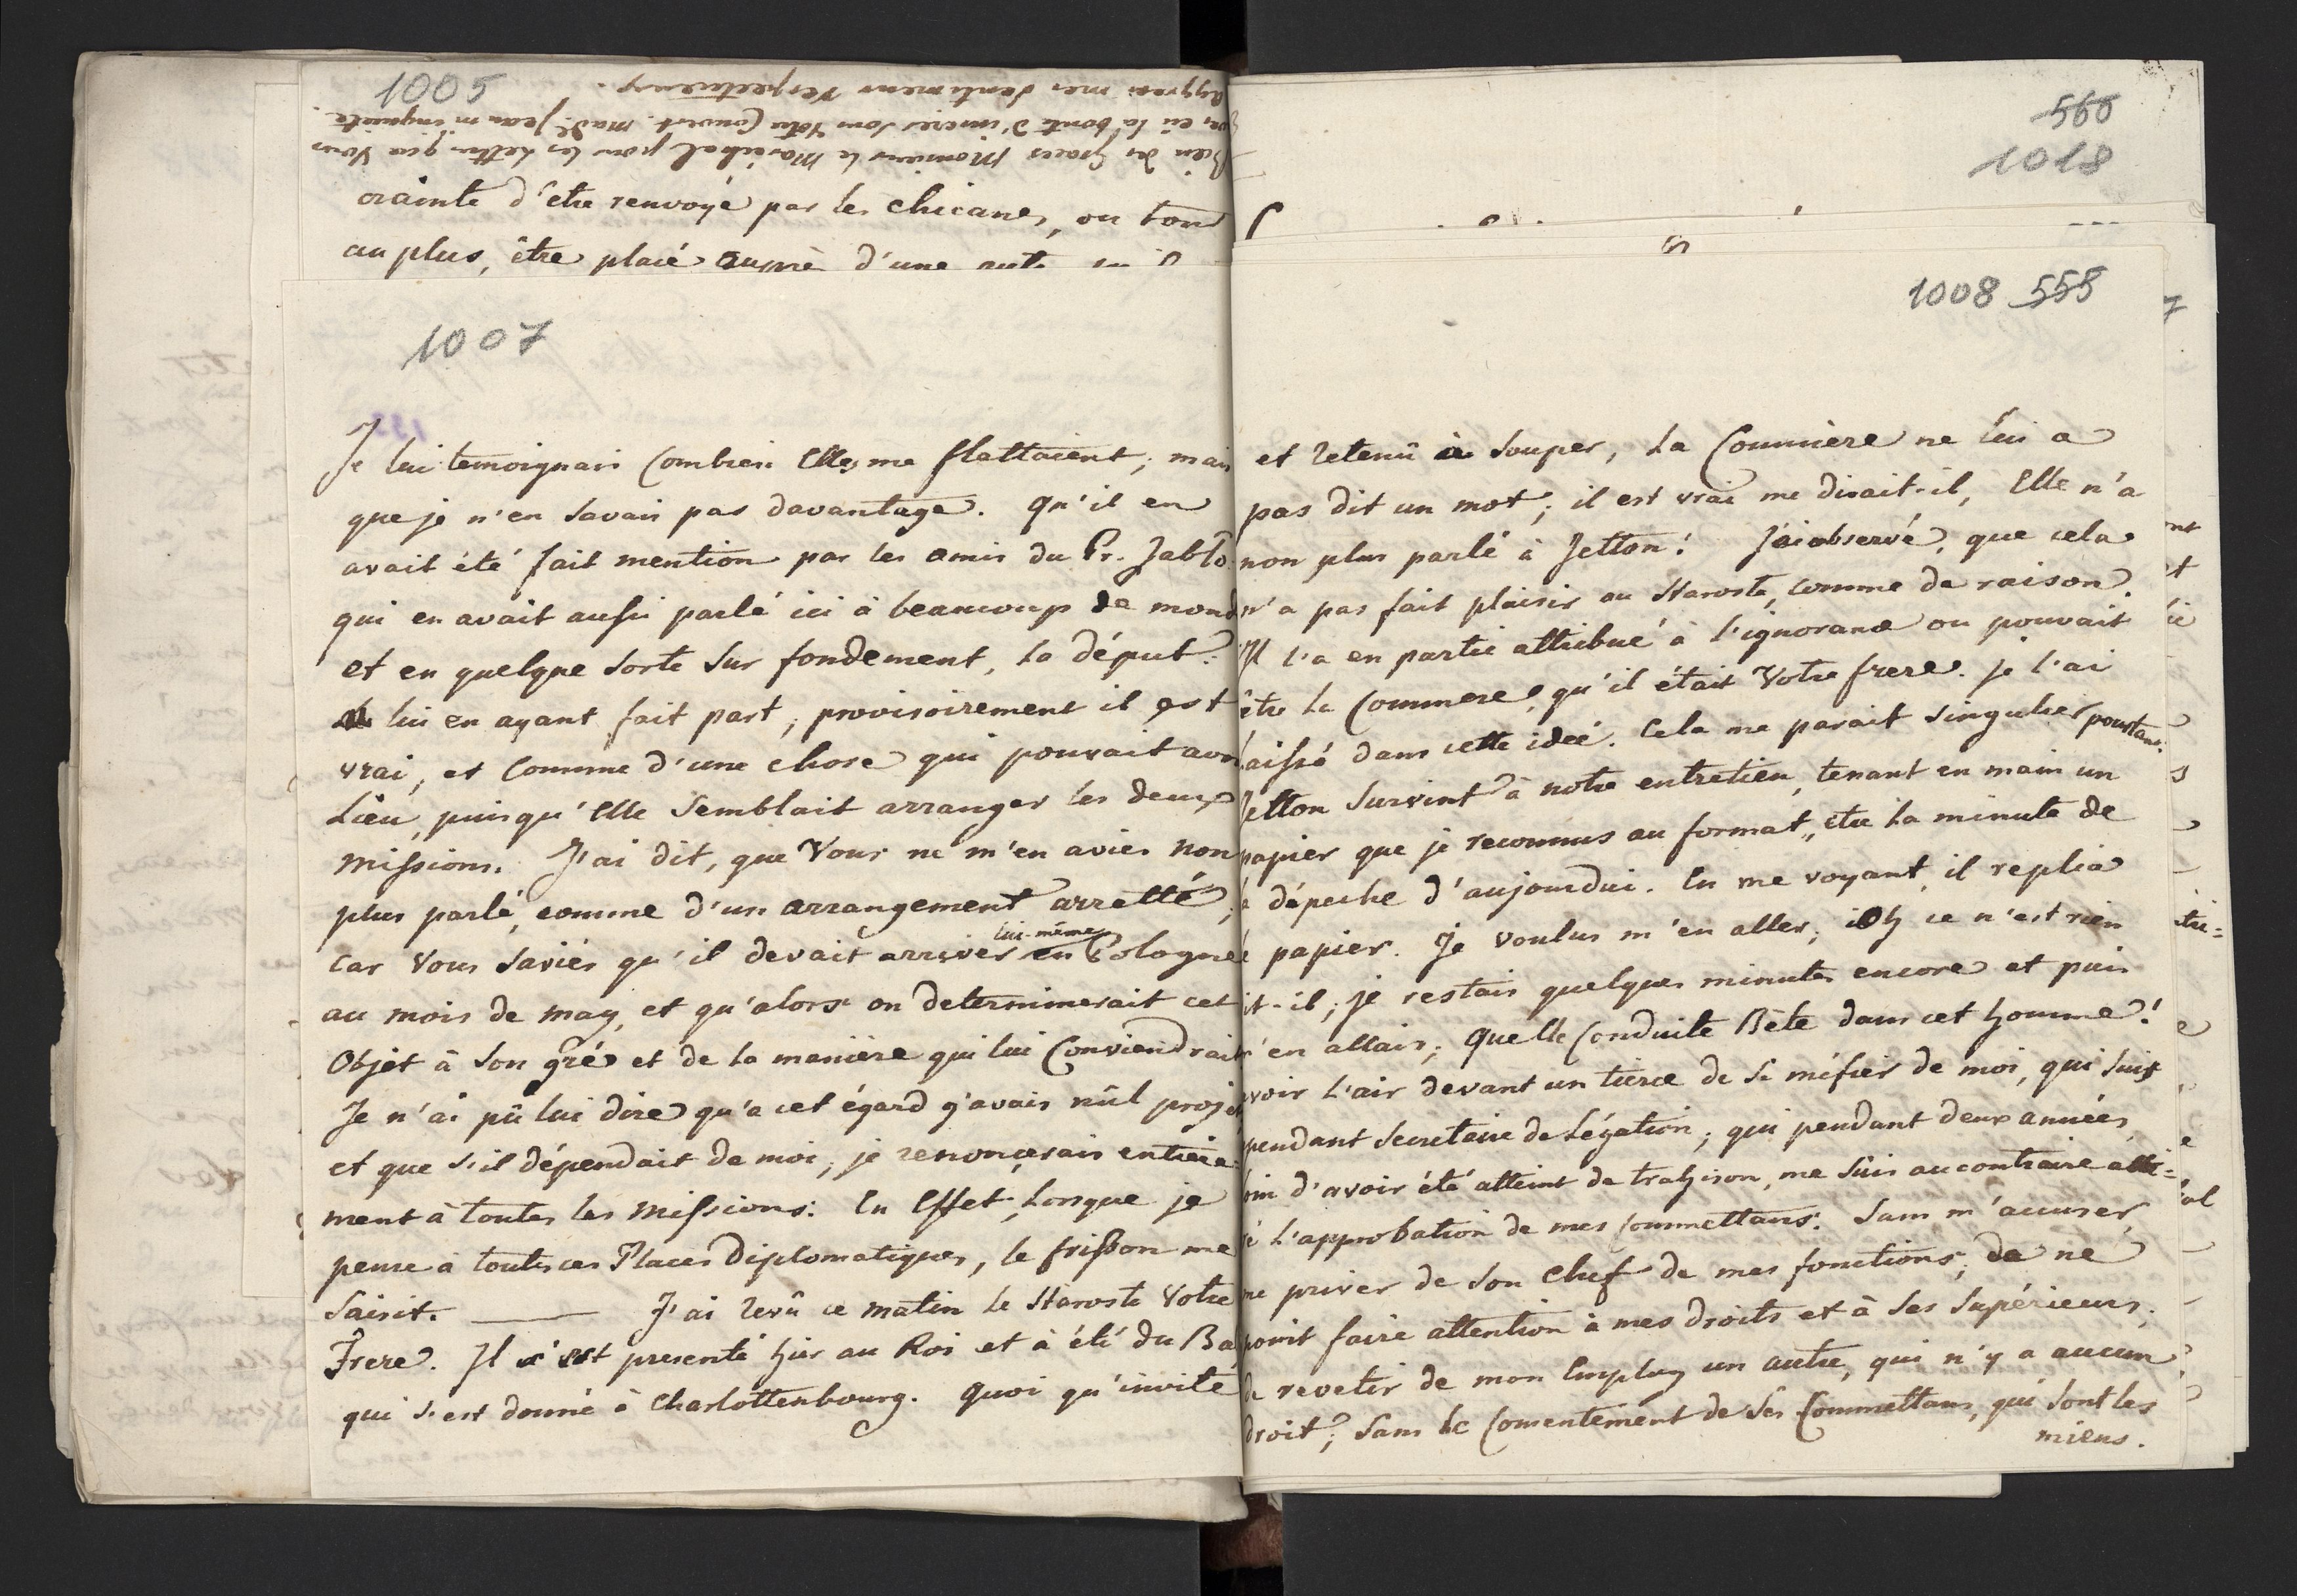 1005
Bien des Graces Monsieur le Marechal pour les Lettres que Vous
eû la bonté d'inserer sous Votre Couvert. Mad. Jean m'inquiete.
aggreés mes sentimens respectueux.
crainte d'être renvoyé par les chicanes, ou tout
au plus, être placé auprè d'une
1007
Je lui temoignais Combien Elles me flattaient; mais
que je n'en savais pas davantage. Qu'il en
avait été fait mention par les amis du Pr. Jablo
qui en avait aussi parlé ici à beaucoup de mond
et en quelque sorte sur fondement, la déput:
lui en ayant fait part, provisoirement il est
vrai, et Comme d'une chose qui pouvait avo
Lieu, puisqu'Elle semblait arranger les deux
Missions. J'ai dit, que Vous ne m'en aviés non
plus parlé, comme d'un arrangement arretté,
car Vous saviés qu'il devait arriver lui-même en Pologne
au mois de may, et qu'alors on determinerait cet
Objet à son gré et de la manière qui lui Conviendrait
Je n'ai pû lui dire qu'a cet égard j'avais nûl proj
et que s'il dépendait de moi, je renoncerais entiere-
ment à toutes les Missions. En Effet, Lorsque je
pense à toutes ces Places Diplomatiques, le frisson me
saisit. — J'ai revû ce matin le Staroste Votre
Frere. Il s'est presenté hier au Roi et à été du Ba
qui s'est donné à Charlottenbourg. Quoi qu'invité
560
1018
1008 558
et retenû à souper, La Commère ne lui a
pas dit un mot; il est vrai me disait-il, Elle n'a
non plus parlé à Jetton! J'ai observé, que cela
n'a pas fait plaisir au Staroste, comme de raison.
Il l'a en partie attribué à l'ignorance ou pouvait
être la Commere, qu'il était Votre frere. je l'ai
laissé dans cette idée. Cela me parait singulier pourtant.
Jetton survint à notre entretien, tenant en main un
papier que je reconnus au format, être la minute de
la dépeche d'aujourdui. En me voyant, il replia
le papier. Je voulus m'en aller; Oh ce n'est rien
it-il; je restais quelques minutes encore et puis
m'en allais; Quelle Conduite Bête dans cet homme!
avoir l'air devant un tierce de se méfier de moi, qui suis
pendant Secretaire de Légation; qui pendant deux années
loin d'avoir été atteint de trahison, me suis au contraire atti-
ré l'approbation de mes Commettans. Sans m'accuser
me priver de son Chef de mes fonctions; de ne
point faire attention à mes droits et à ses Supérieurs,
de revetir de mon Employ un autre, qui n'y a aucun
droit; Sans le Consentement de ses Commettans, qui sont les
miens.